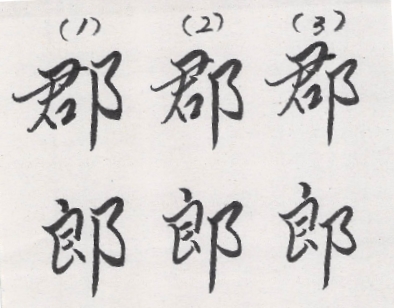 (1) (2) (3)
郡 郡 郡
郎 郎 郎